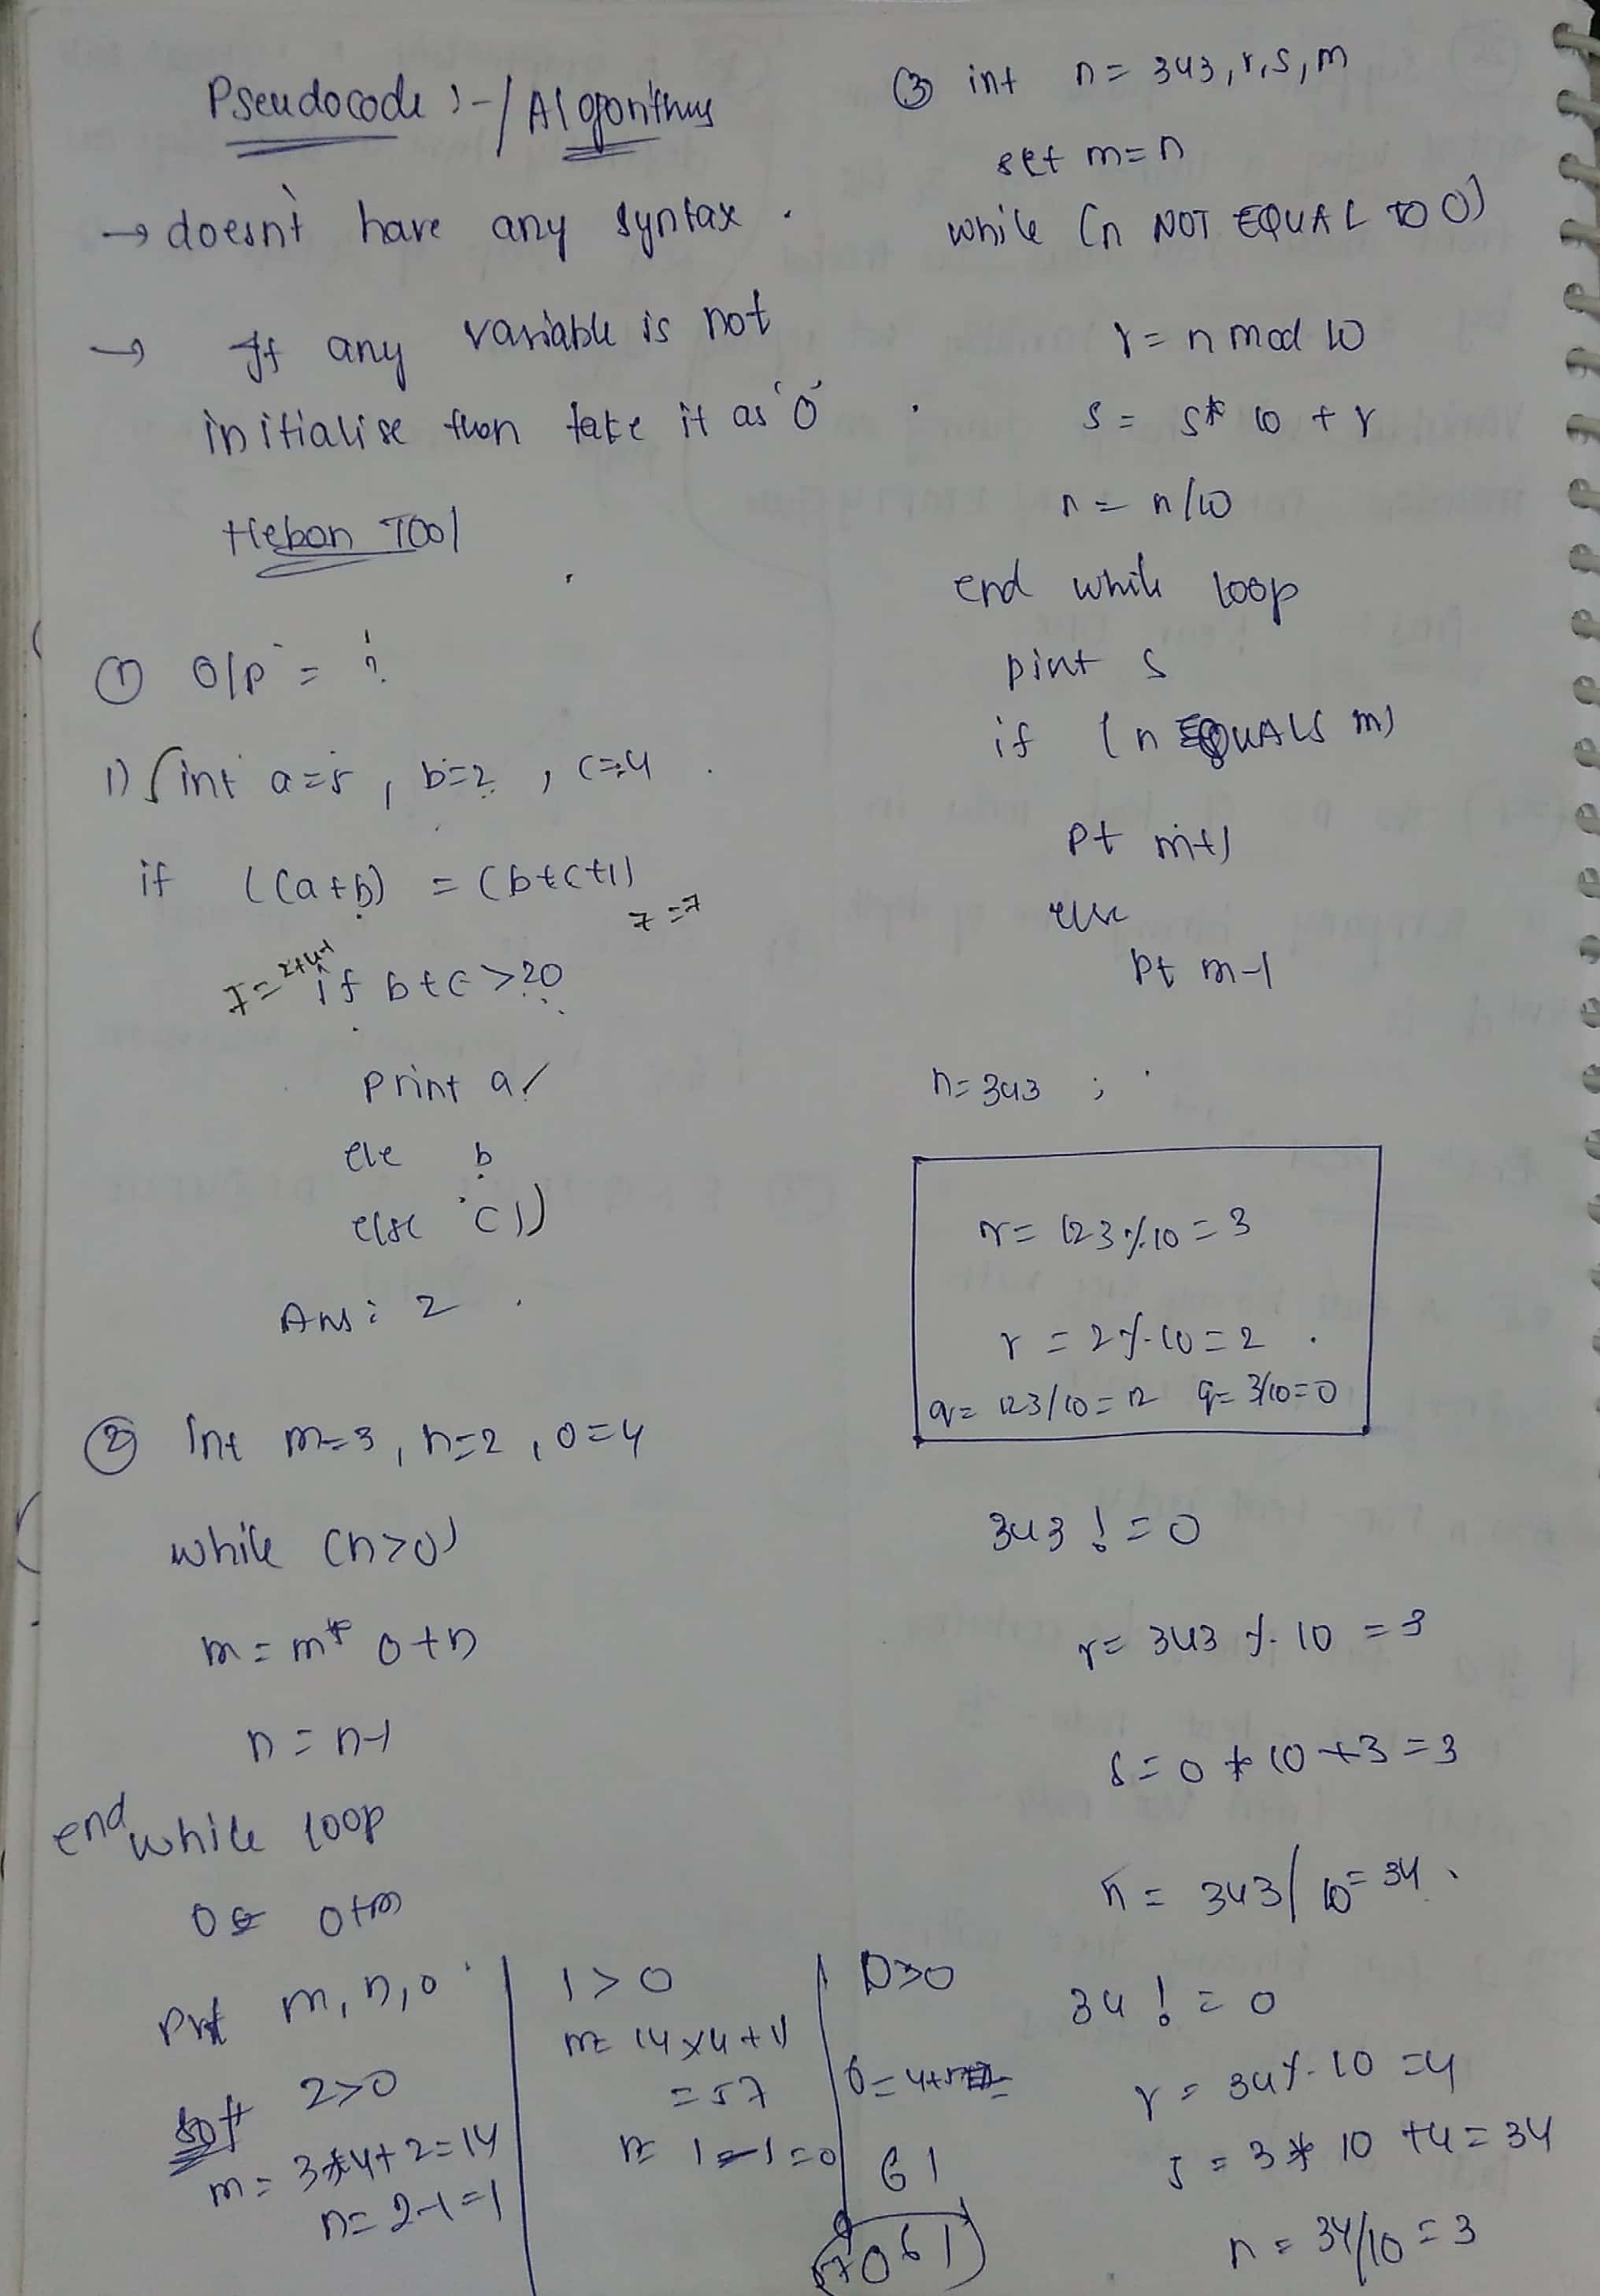 Pseudocode :-/ Algorithms
→ doesn't have any syntax.
→ If any variable is not
initialise then take it as '0'
Hebon Tool
① O/P = ?
1) int a=5, b=2, c=4
if ((a+b) = (b+c+1)
7=7
7=2+4+1
if b+c>20
print a
ele b
else c))
Ans: 2
② Int m=3, n=2, o=4
while (n>0)
m=m* o+n
n=n-1
end while loop
o= o+m
Prt m,n,o
2>0
m=3*4+2=14
n=2-1=1
1>0
m=14x4+1
=57
n=1-1=0
0>0
61
57061
③ int n=343,r,s,m
set m=n
while (n NOT EQUAL TO 0)
r=n mod 10
s= s* 10 + r
n= n/10
end while loop
pint s
if (n EQUALS m)
Pt m+1
else
Pt m-1
n=343 ;
r= 123%10=3
r=2%10=2
q=123/10=12 q=3/10=0
343 != 0
r=343 % 10 =3
s=0*10+3=3
n=343/10=34.
34 != 0
r=34%10=4
s=3*10 +4=34
n=34/10=3